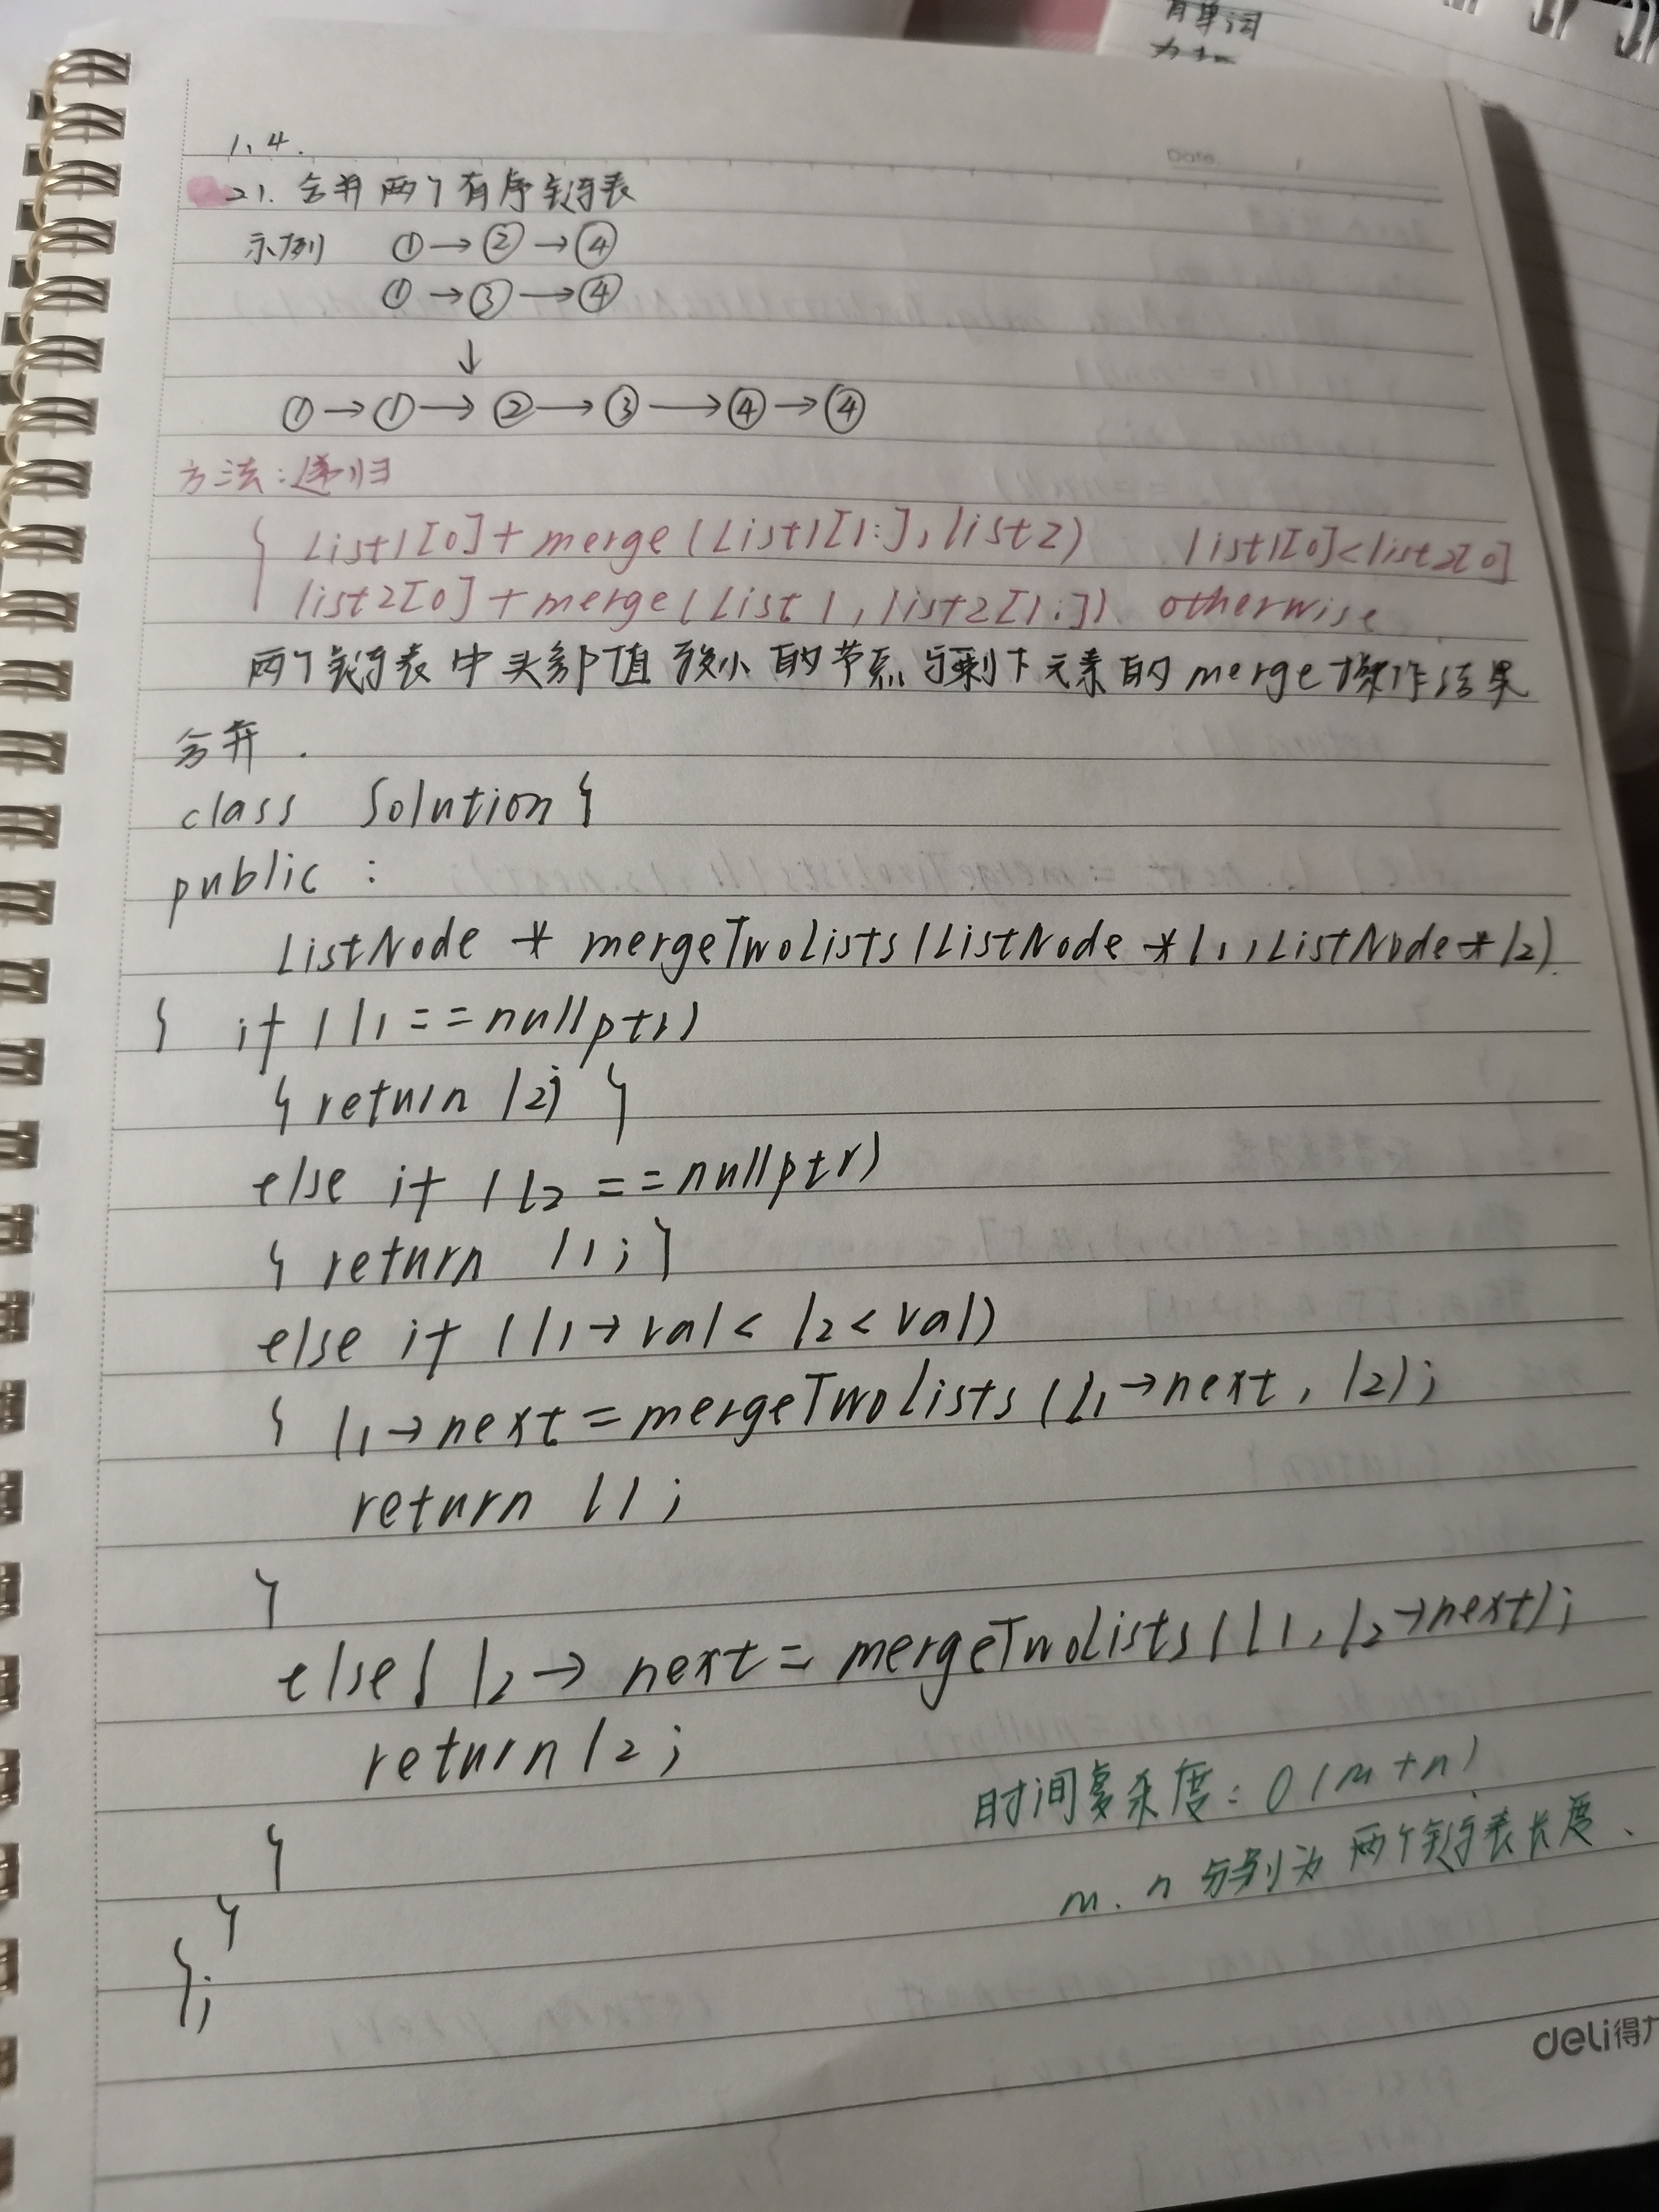 有单词
1.4.
Date
21. 合并两个有序链表
示例 ①→②→④
①→③→④
↓
①→①→②→③→④→④
方法:递归
{ List1[0]+merge(List1[1:],list2) list1[0]<list2[0]
list2[0]+merge(List1,list2[1:]) otherwise
两个链表中头部值较小的节点与剩下元素的merge操作结果
合并.
class Solution{
public:
ListNode * mergeTwoLists(ListNode *l1,ListNode*l2)
{ if (l1==nullptr)
{ return l2; }
else if (l2==nullptr)
{ return l1; }
else if (l1→val < l2<val)
{ l1→next=mergeTwoLists(l1→next, l2);
return l1;
}
else{ l2→next=mergeTwoLists(l1,l2→next);
return l2;
时间复杂度:O(m+n)
m、n分别为两个链表长度、
}
}
};
deli得力